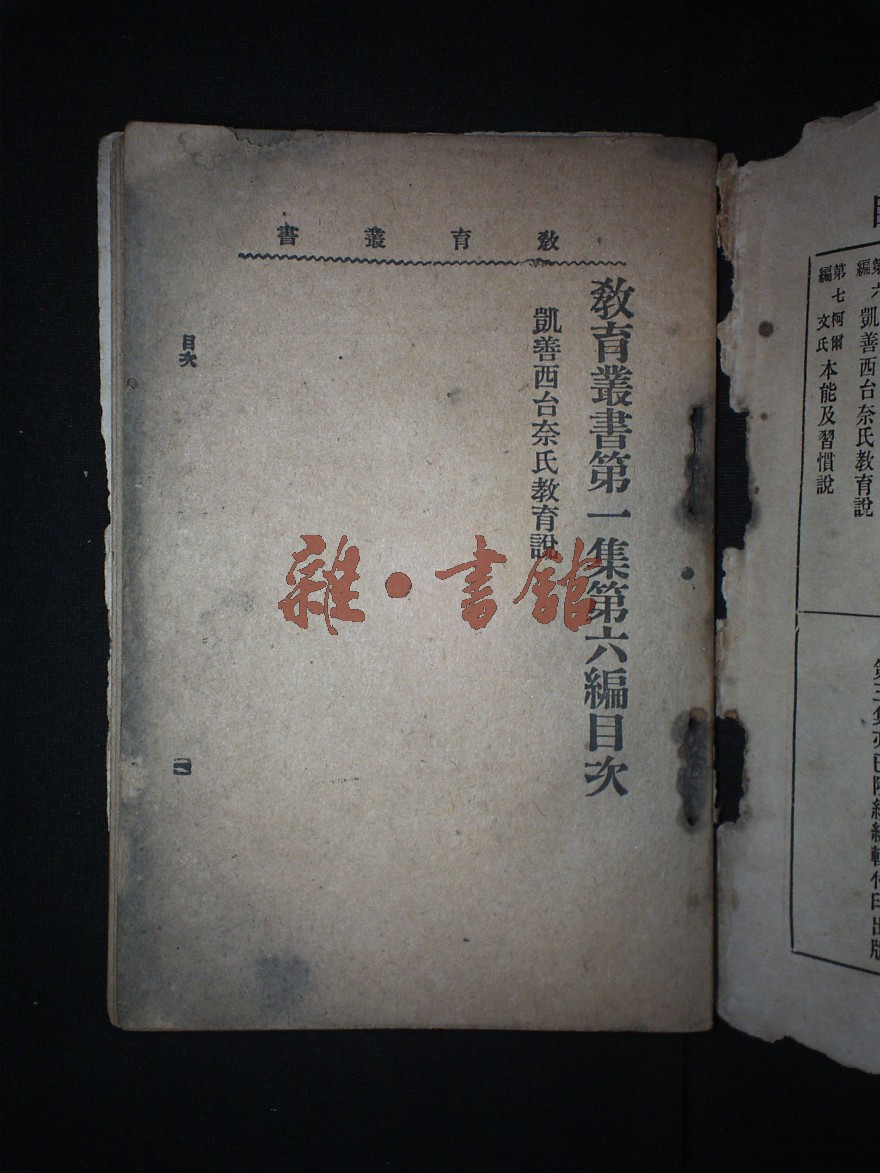 教育叢書
教育叢書第一集第六編目次
凱善西台奈氏教育說
目次
一
雜·書館
第六編 凱善西台奈氏教育說
第七編 柯爾文氏 本能及習慣說